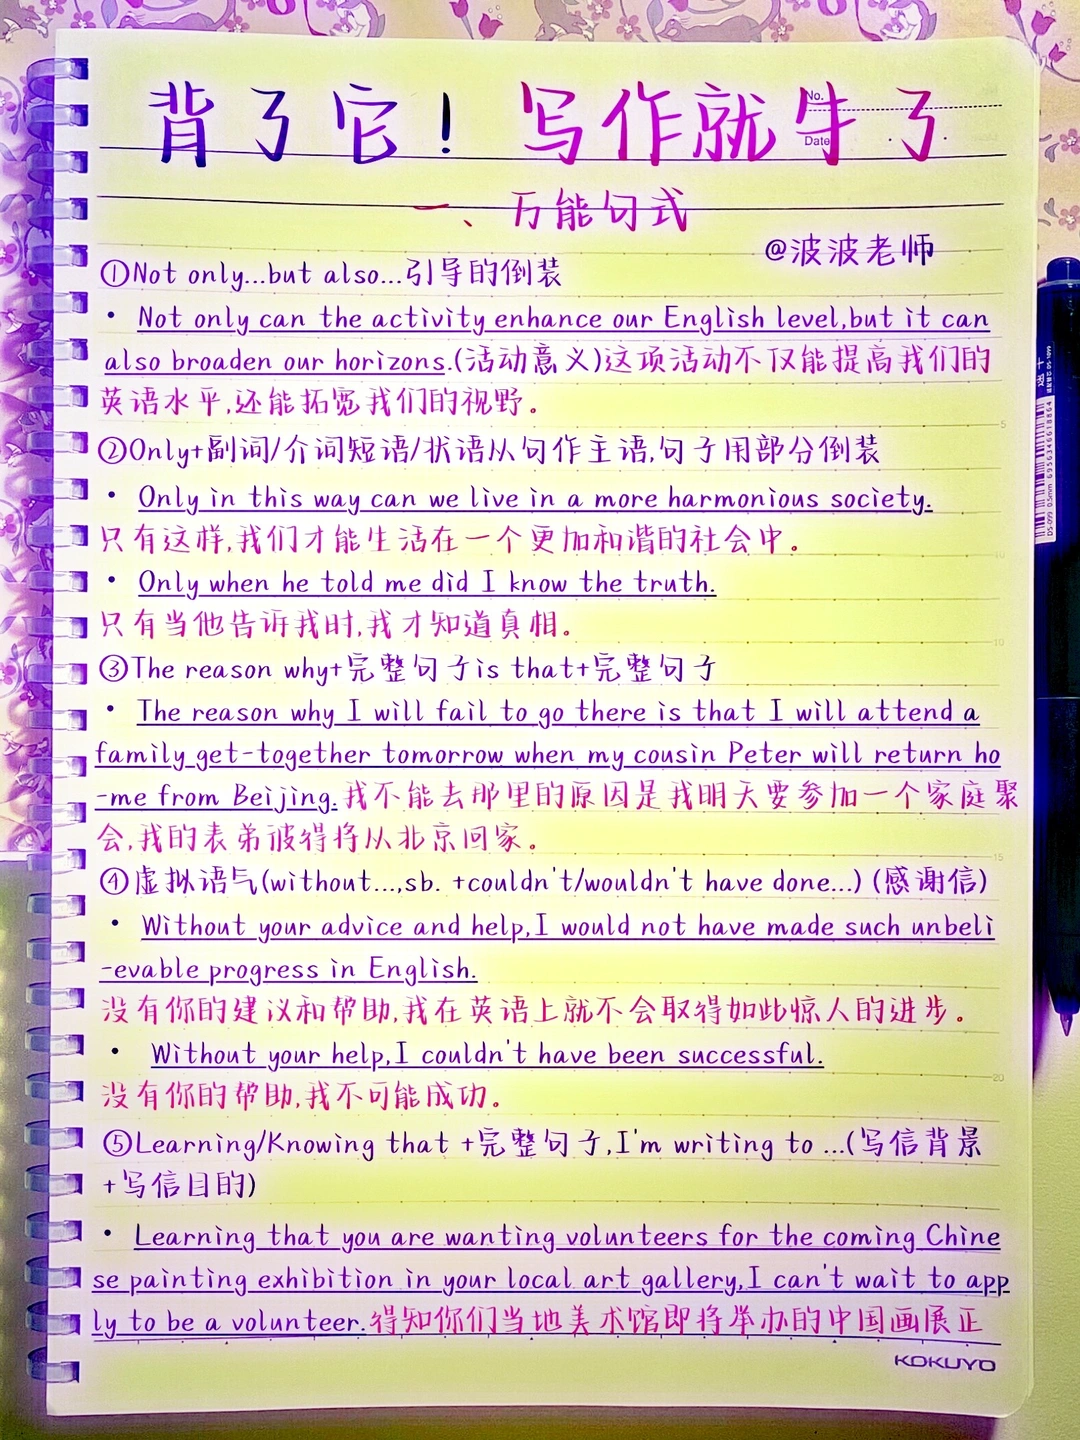 背了它！写作就牛了
No.
Date
一、万能句式
@波波老师
①Not only...but also...引导的倒装
· Not only can the activity enhance our English level,but it can
also broaden our horizons.(活动意义)这项活动不仅能提高我们的
英语水平,还能拓宽我们的视野。
②Only+副词/介词短语/状语从句作主语,句子用部分倒装
· Only in this way can we live in a more harmonious society.
只有这样,我们才能生活在一个更加和谐的社会中。
· Only when he told me did I know the truth.
只有当他告诉我时,我才知道真相。
③The reason why+完整句子is that+完整句子
· The reason why I will fail to go there is that I will attend a
family get-together tomorrow when my cousin Peter will return ho
-me from Beijing.我不能去那里的原因是我明天要参加一个家庭聚
会,我的表弟彼得将从北京回家。
④虚拟语气(without...,sb. +couldn't/wouldn't have done...) (感谢信)
· Without your advice and help,I would not have made such unbeli
-evable progress in English.
没有你的建议和帮助,我在英语上就不会取得如此惊人的进步。
· Without your help,I couldn't have been successful.
没有你的帮助,我不可能成功。
⑤Learning/Knowing that +完整句子,I'm writing to ...(写信背景
+写信目的)
· Learning that you are wanting volunteers for the coming Chine
se painting exhibition in your local art gallery,I can't wait to app
ly to be a volunteer.得知你们当地美术馆即将举办的中国画展正
KOKUYO
5
10
10
15
20